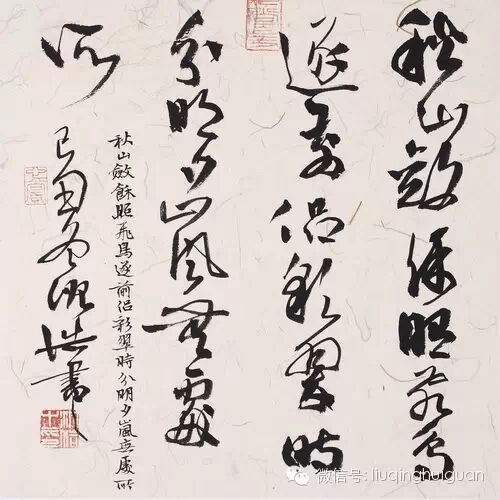 秋山斂餘照飛鳥
逐前侶彩翠時
分明夕嵐無處
所
秋山斂餘照飛鳥逐前侶彩翠時分明夕嵐無處所
冬浩書
微信号: liuqinghuiguan